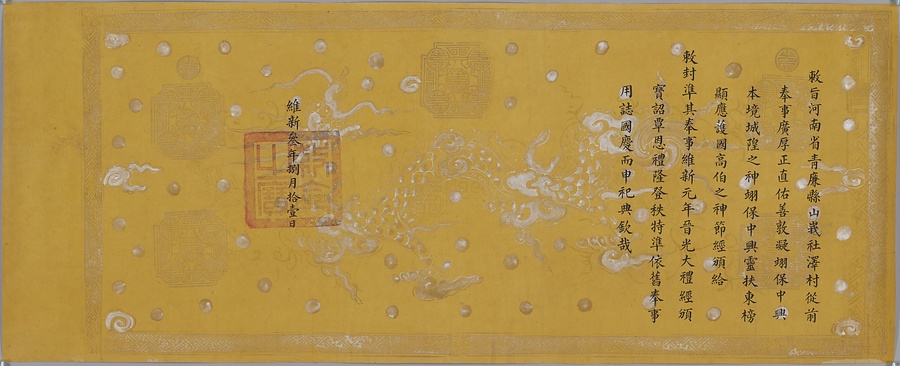 敕旨河南省青廉縣山義社澤村從前
奉事廣厚正直佑善敦凝翊保中興
本境城隍之神翊保中興靈扶東榜
顯應護國高伯之神節經頒給
敕封準其奉事維新元年晉光大禮經頒
寶詔覃恩禮隆登秩特準依舊奉事
用誌國慶而申祀典欽哉
維新叁年捌月拾壹日
敕命之寶